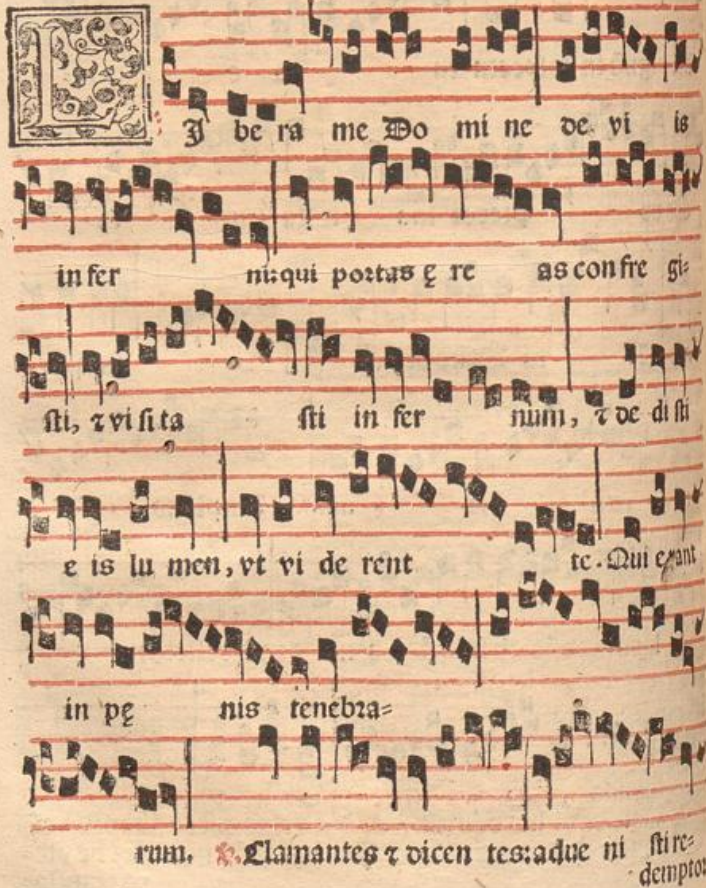 LI be ra me Do mi ne de vi is
in fer ni: qui portas ę re as con fre gi=
sti, ⁊ vi si ta sti in fer num, ⁊ de di sti
e is lu men, vt vi de rent te. Qui erant
in pę nis tenebra=
rum. ℟. Clamantes ⁊ dicen tes: adue ni sti re=
demptor